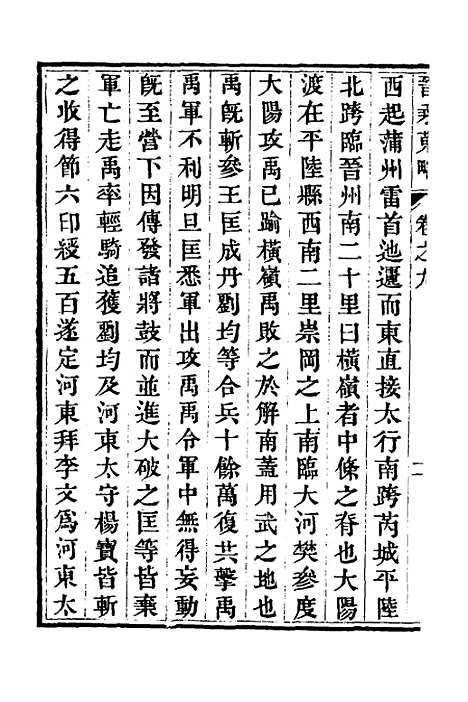 晉乘蒐略 卷之九 二
西起蒲州雷首迆邐而東直接太行南跨芮城平陸
北跨臨晉州南二十里曰橫嶺者中條之脊也大陽
渡在平陸縣西南二里崇岡之上南臨大河樊參度
大陽攻禹已踰橫嶺禹敗之於解南蓋用武之地也
禹旣斬參王匡成丹劉均等合兵十餘萬復共擊禹
禹軍不利明旦匡悉軍出攻禹禹令軍中無得妄動
旣至營下因傳發諸將鼓而並進大破之匡等皆棄
軍亡走禹率輕騎追獲劉均及河東太守楊寶皆斬
之收得節六印綬五百遂定河東拜李文爲河東太